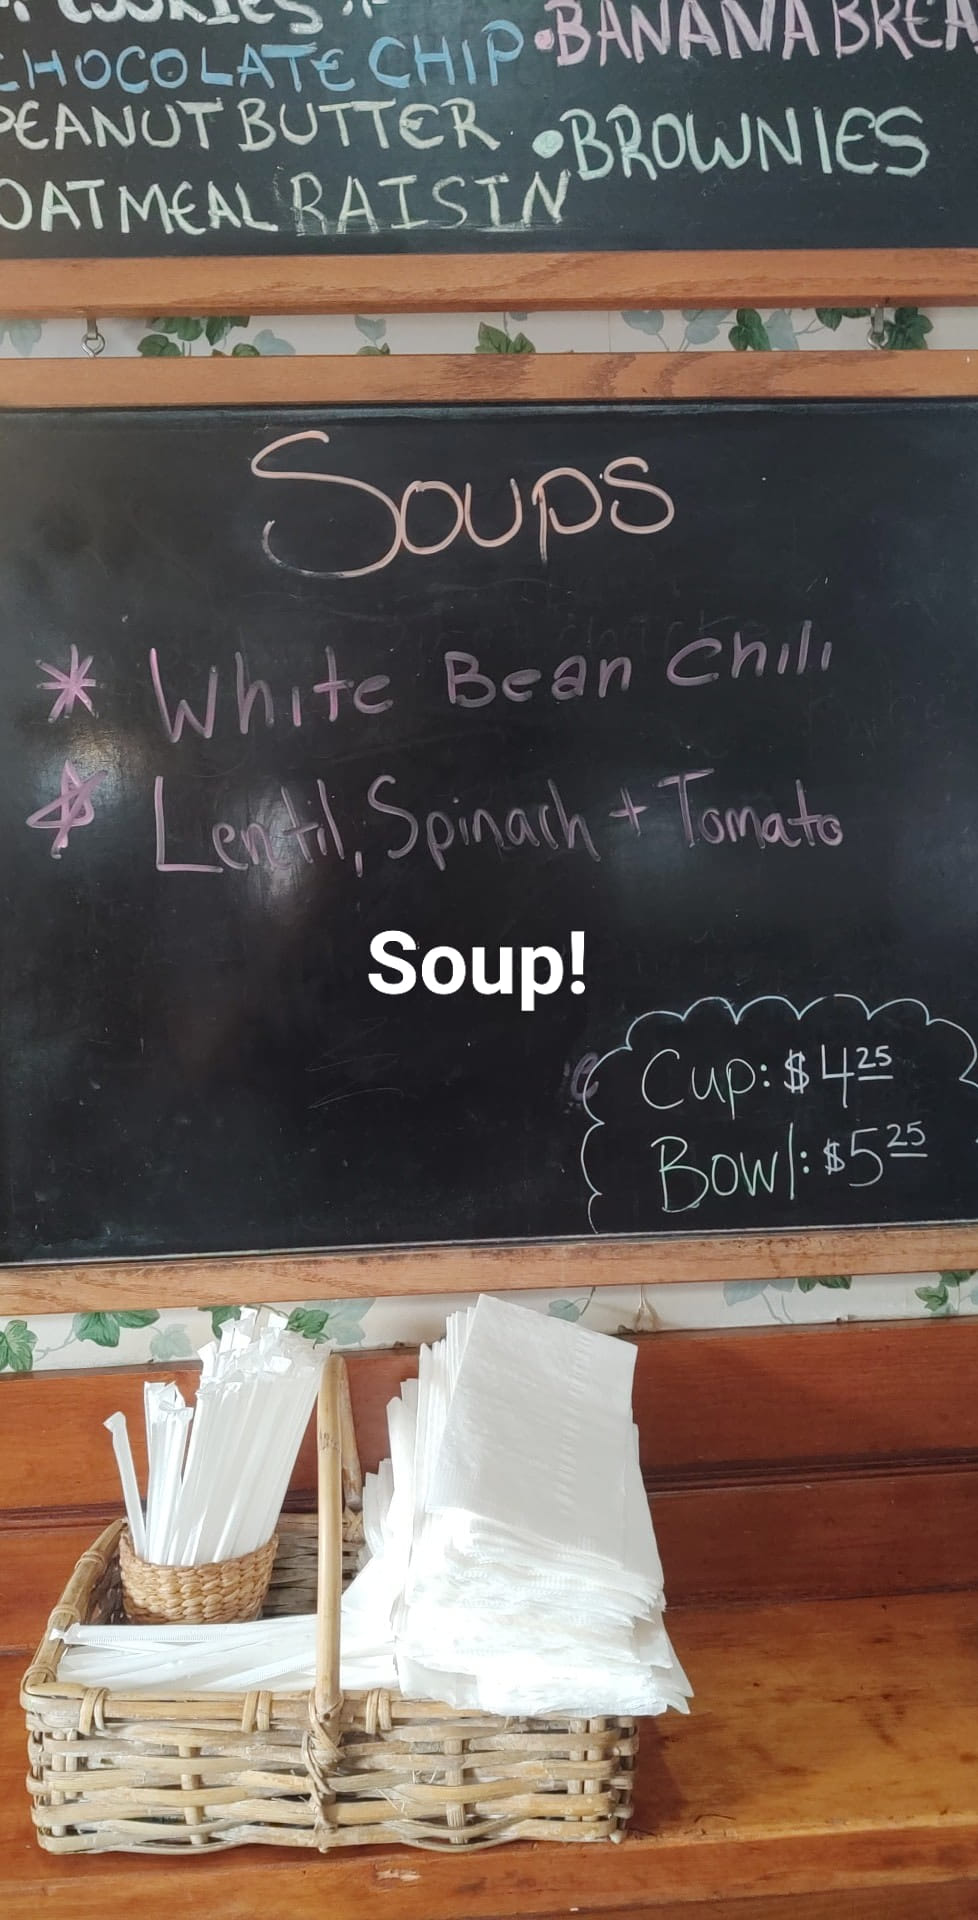 COOKIES
CHOCOLATE CHIP
PEANUT BUTTER
OATMEAL RAISIN
•BANANA BREA
•BROWNIES
Soups
* White Bean Chili
* Lentil, Spinach + Tomato
Soup!
Cup: $4.25
Bowl: $5.25